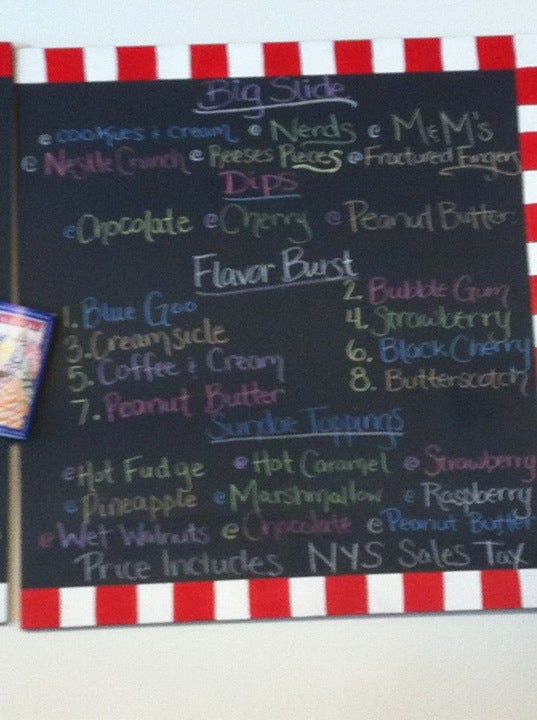 Big Slide
cookies & cream Nerds M&M's
Nestle Crunch Reeses Pieces Fractured Fingers
Dips
Chocolate Cherry Peanut Butter
Flavor Burst
1. Blue Goo 2. Bubble Gum
3. Creamsicle 4. Strawberry
5. Coffee & Cream 6. Black Cherry
7. Peanut Butter 8. Butterscotch
Sundae Toppings
Hot Fudge Hot Caramel Strawberry
Pineapple Marshmallow Raspberry
Wet Walnuts Chocolate Peanut Butter
Price Includes NYS Sales Tax